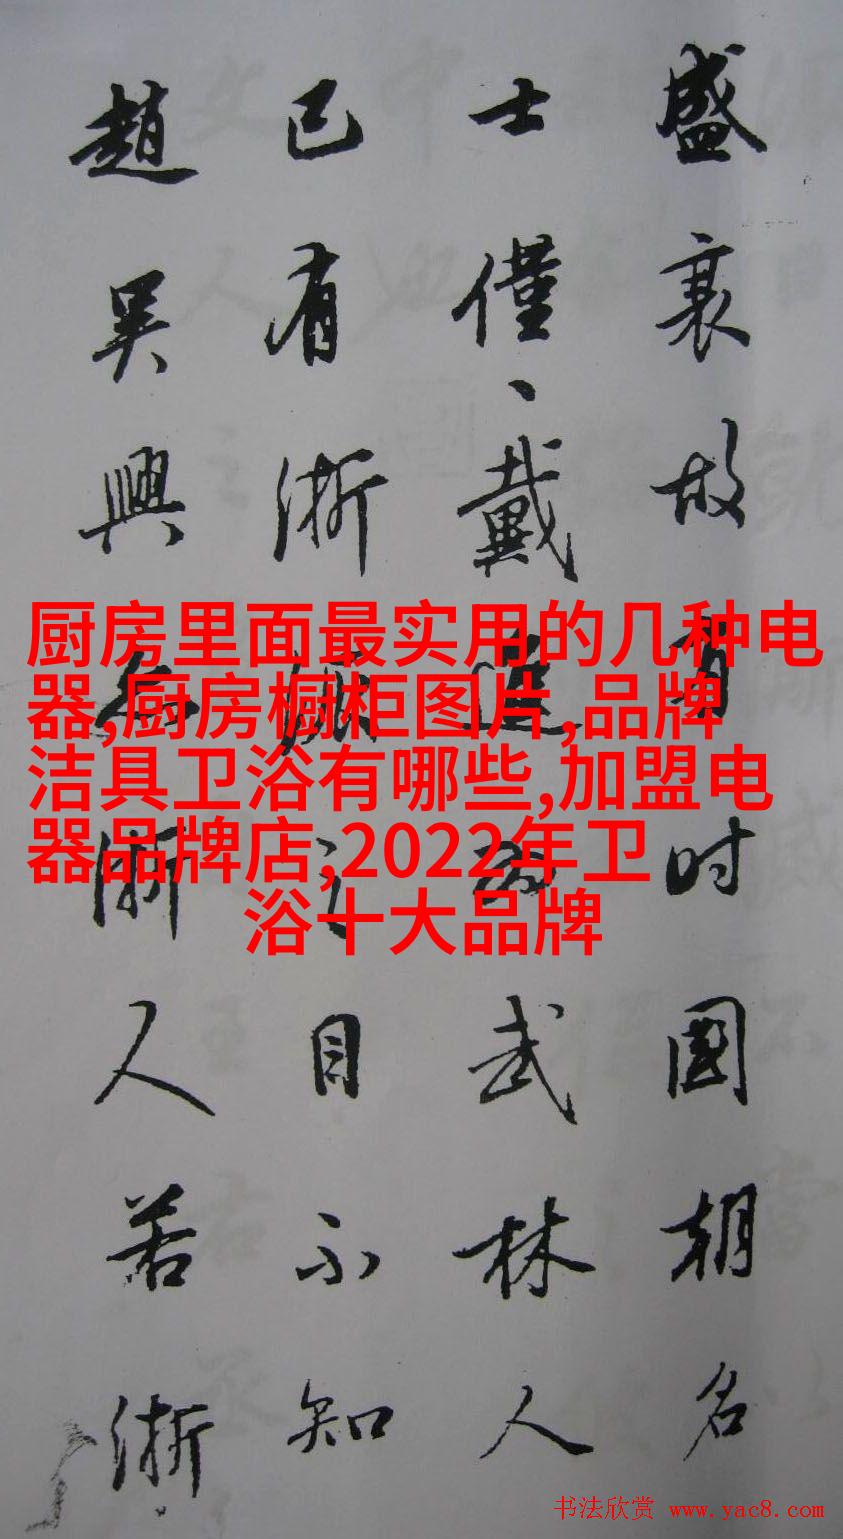 盛衰故有时國朝名
士僅、戴進為武林人
已有浙派之目不知
趙吴興亦浙人若浙
厨房里面最实用的几种电
器,厨房橱柜图片,品牌
洁具卫浴有哪些,加盟电
器品牌店,2022年卫
浴十大品牌
书法欣赏 www.yac8.com